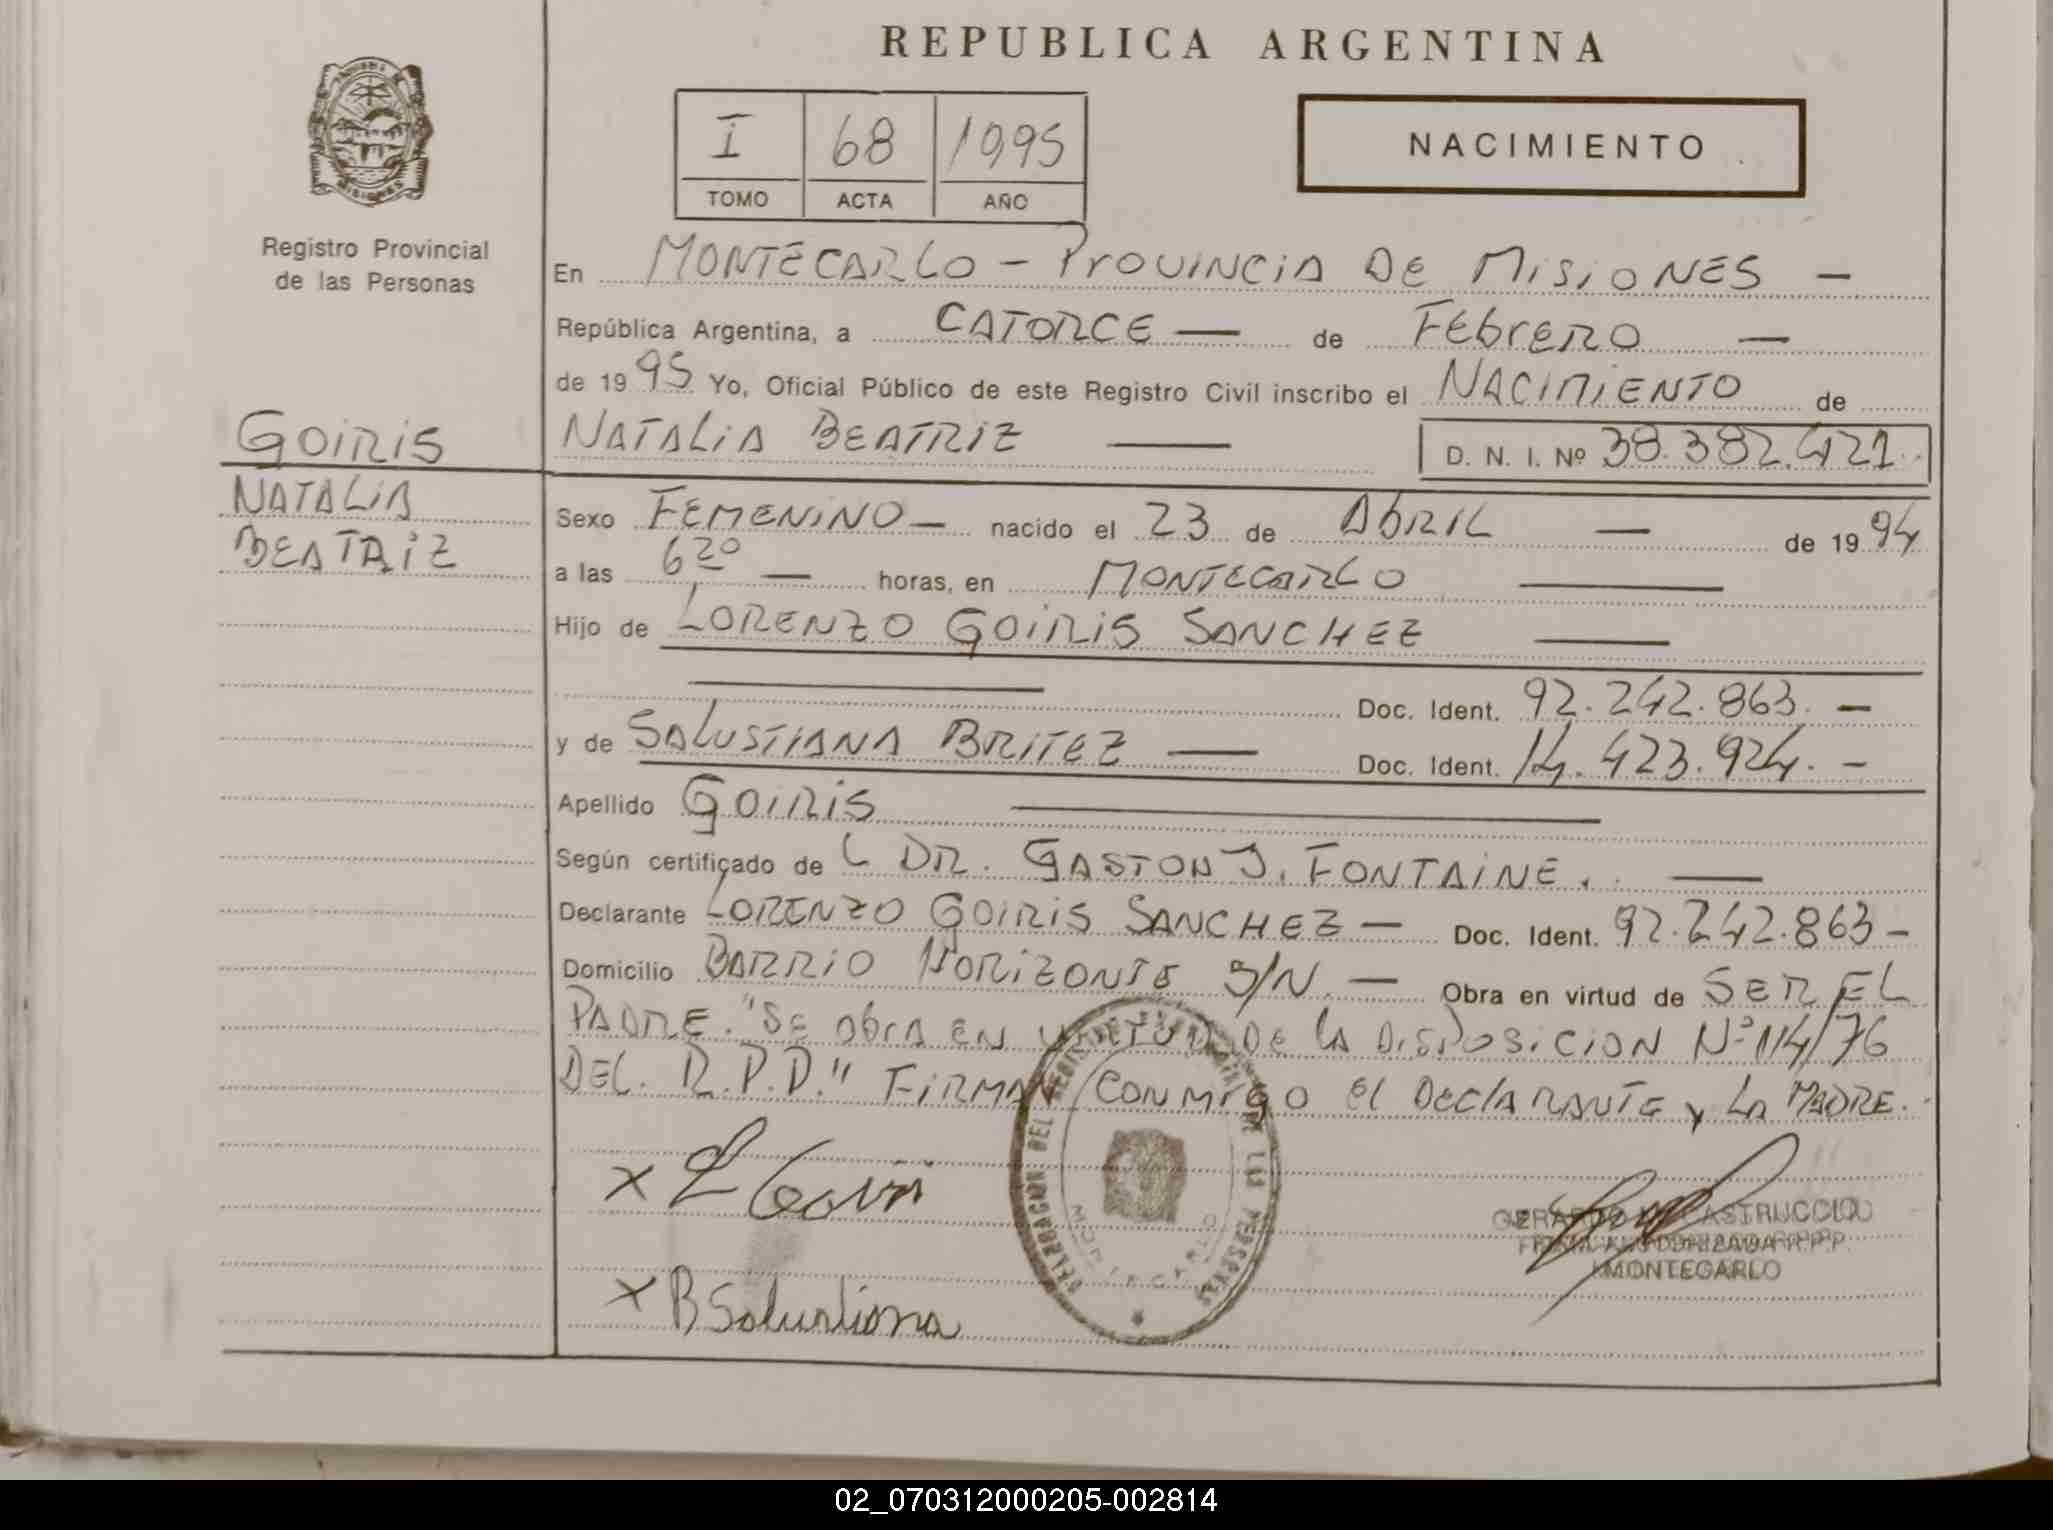 REPUBLICA ARGENTINA
MISIONES
Registro Provincial
de las Personas
I 68 1995
TOMO ACTA AÑO
NACIMIENTO
En MONTECARLO - PROVINCIA DE MISIONES -
República Argentina, a CATORCE - de FEBRERO -
de 1995 Yo, Oficial Público de este Registro Civil inscribo el NACIMIENTO de
NATALIA BEATRIZ - D. N. I. Nº 38.382.421.
GOIRIS
NATALIA
BEATRIZ
Sexo FEMENINO - nacido el 23 de ABRIL - de 1994
a las 6 20 - horas, en MONTECARLO -
Hijo de LORENZO GOIRIS SANCHEZ -
Doc. Ident. 92.242.863. -
y de SALUSTIANA BRITEZ - Doc. Ident. 14.423.924. -
Apellido GOIRIS -
Según certificado de L DR. GASTON J. FONTAINE. -
Declarante LORENZO GOIRIS SANCHEZ - Doc. Ident. 92.242.863 -
Domicilio BARRIO HORIZONTE S/N. - Obra en virtud de SER EL
PADRE. "SE OBRA EN VIRTUD DE LA DISPOSICION Nº 114/76
DEL. R.P.P." FIRMAN CONMIGO EL DECLARANTE y LA MADRE.
x L Goiri
x B Salustiana
DELEGACION DEL REGISTRO PROVINCIAL DE LAS PERSONAS
MONTECARLO
GERARDO CASTRUCCIO
FIRMA AUTORIZADA R.P.P.
MONTECARLO
02_070312000205-002814